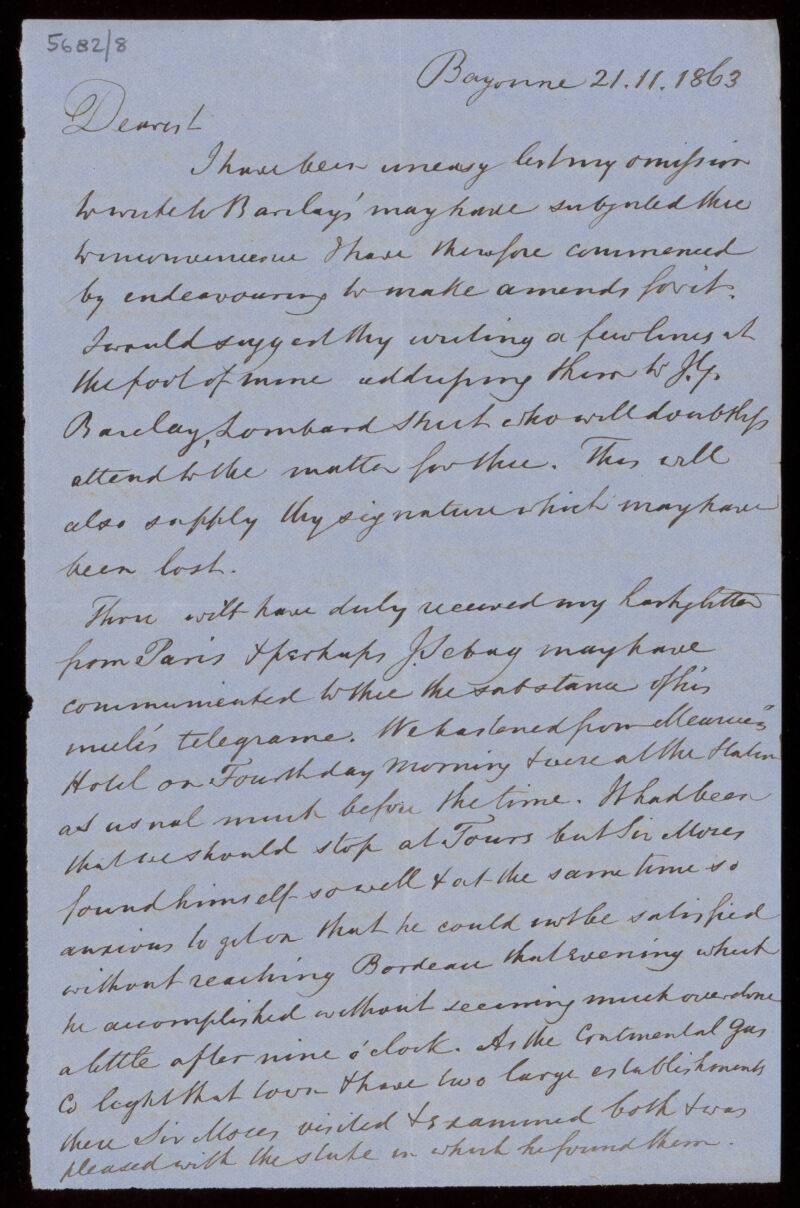 5682/8
Bayonne 21.11.1863
Dearest
I have been uneasy lest my omission
to write to Barclay's may have subjected thee
to inconvenience I have therefore commenced
by endeavouring to make amends for it.
I would suggest thy writing a few lines at
the foot of mine addressing them to J. G.
Barclay, Lombard Street who will doubtless
attend to the matter for thee. This will
also supply thy signature which may have
been lost.
Thou wilt have duly received my hasty letter
from Paris & perhaps J. Sebag may have
communicated to thee the substance of his
uncle's telegrame. We hastened from Meurice's
Hotel on Fourthday morning & were at the Station
as usual much before the time. It had been
that we should stop at Tours but Sir Moses
found himself so well & at the same time so
anxious to get on that he could not be satisfied
without reaching Bordeau that evening which
he accomplished without seeming much overdone
a little after nine o'clock. As the Continental Gas
Co light that town & have two large establishments
there Sir Moses visited & examined both & was
pleased with the state in which he found them.